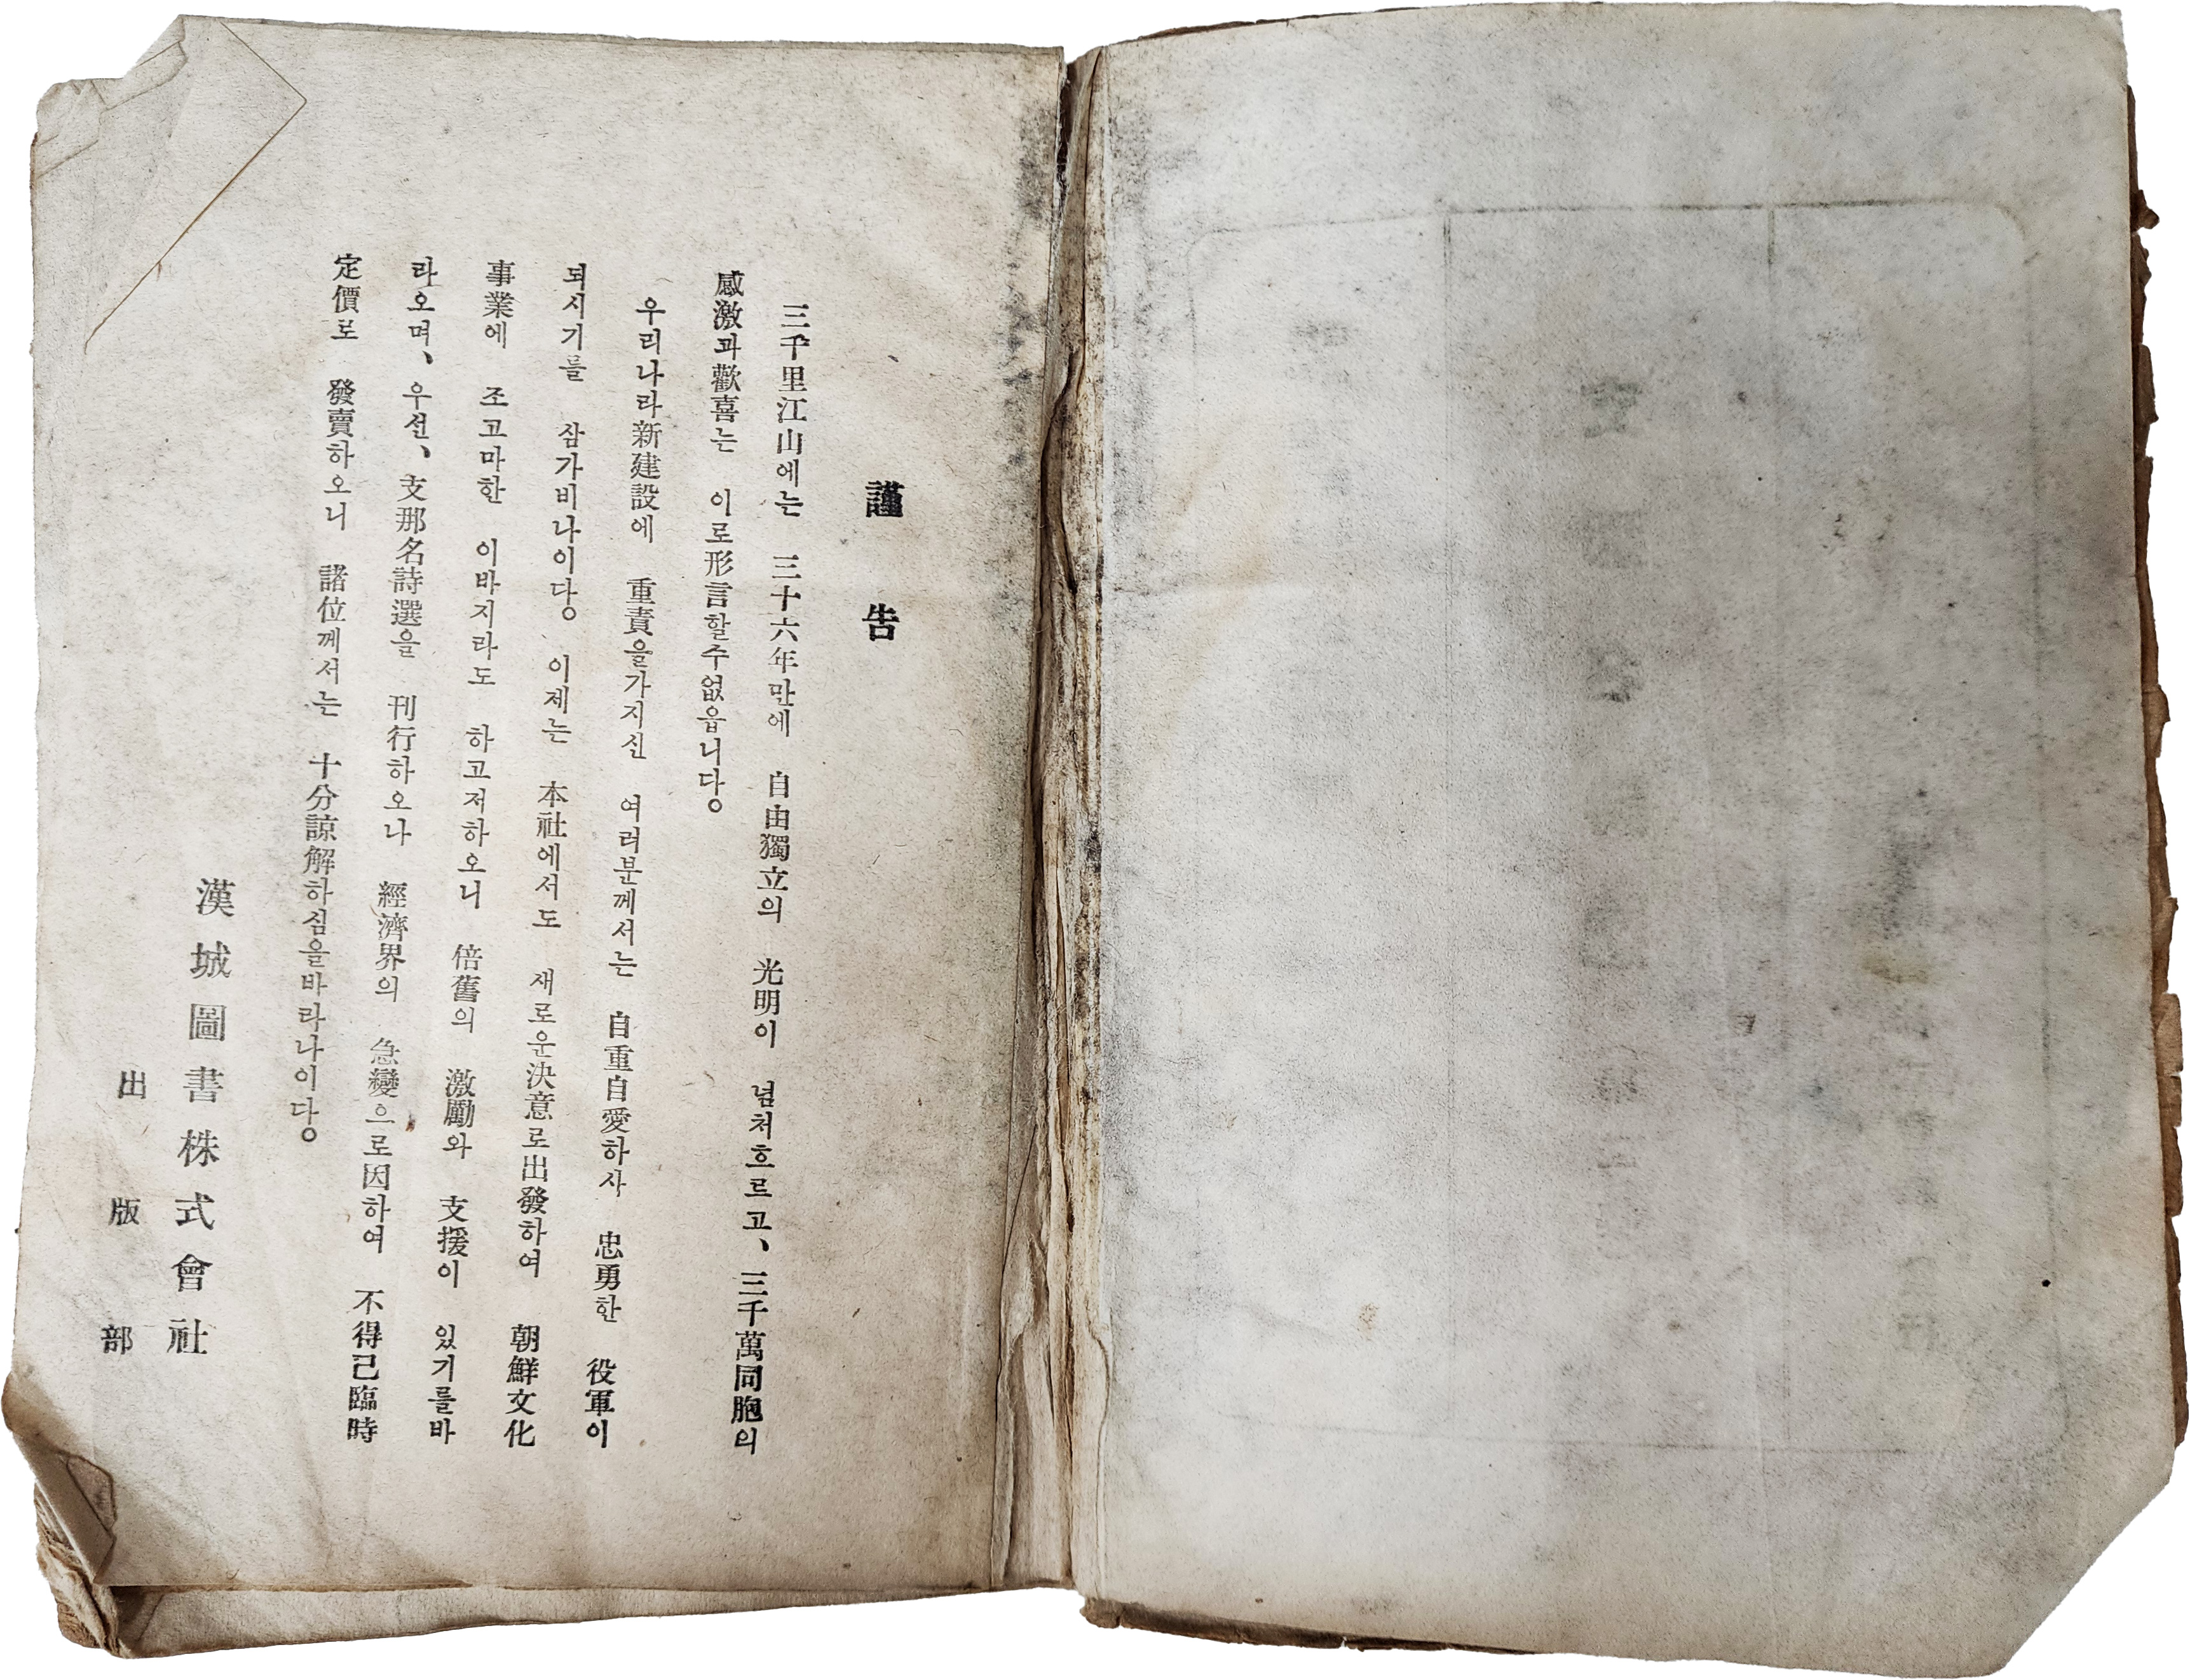 謹告
三千里江山에는 三十六年만에 自由獨立의 光明이 넘처흐르고、三千萬同胞의
感激과歡喜는 이로形言할수없읍니다。
우리나라新建設에 重責을가지신 여러분께서는 自重自愛하사 忠勇한 役軍이
되시기를 삼가비나이다。 이제는 本社에서도 새로운決意로出發하여 朝鮮文化
事業에 조고마한 이바지라도 하고저하오니 倍舊의 激勵와 支援이 있기를바
라오며、우선、支那名詩選을 刊行하오나 經濟界의 急變으로因하여 不得已臨時
定價로 發賣하오니 諸位께서는 十分諒解하심을바라나이다。
漢城圖書株式會社
出版部